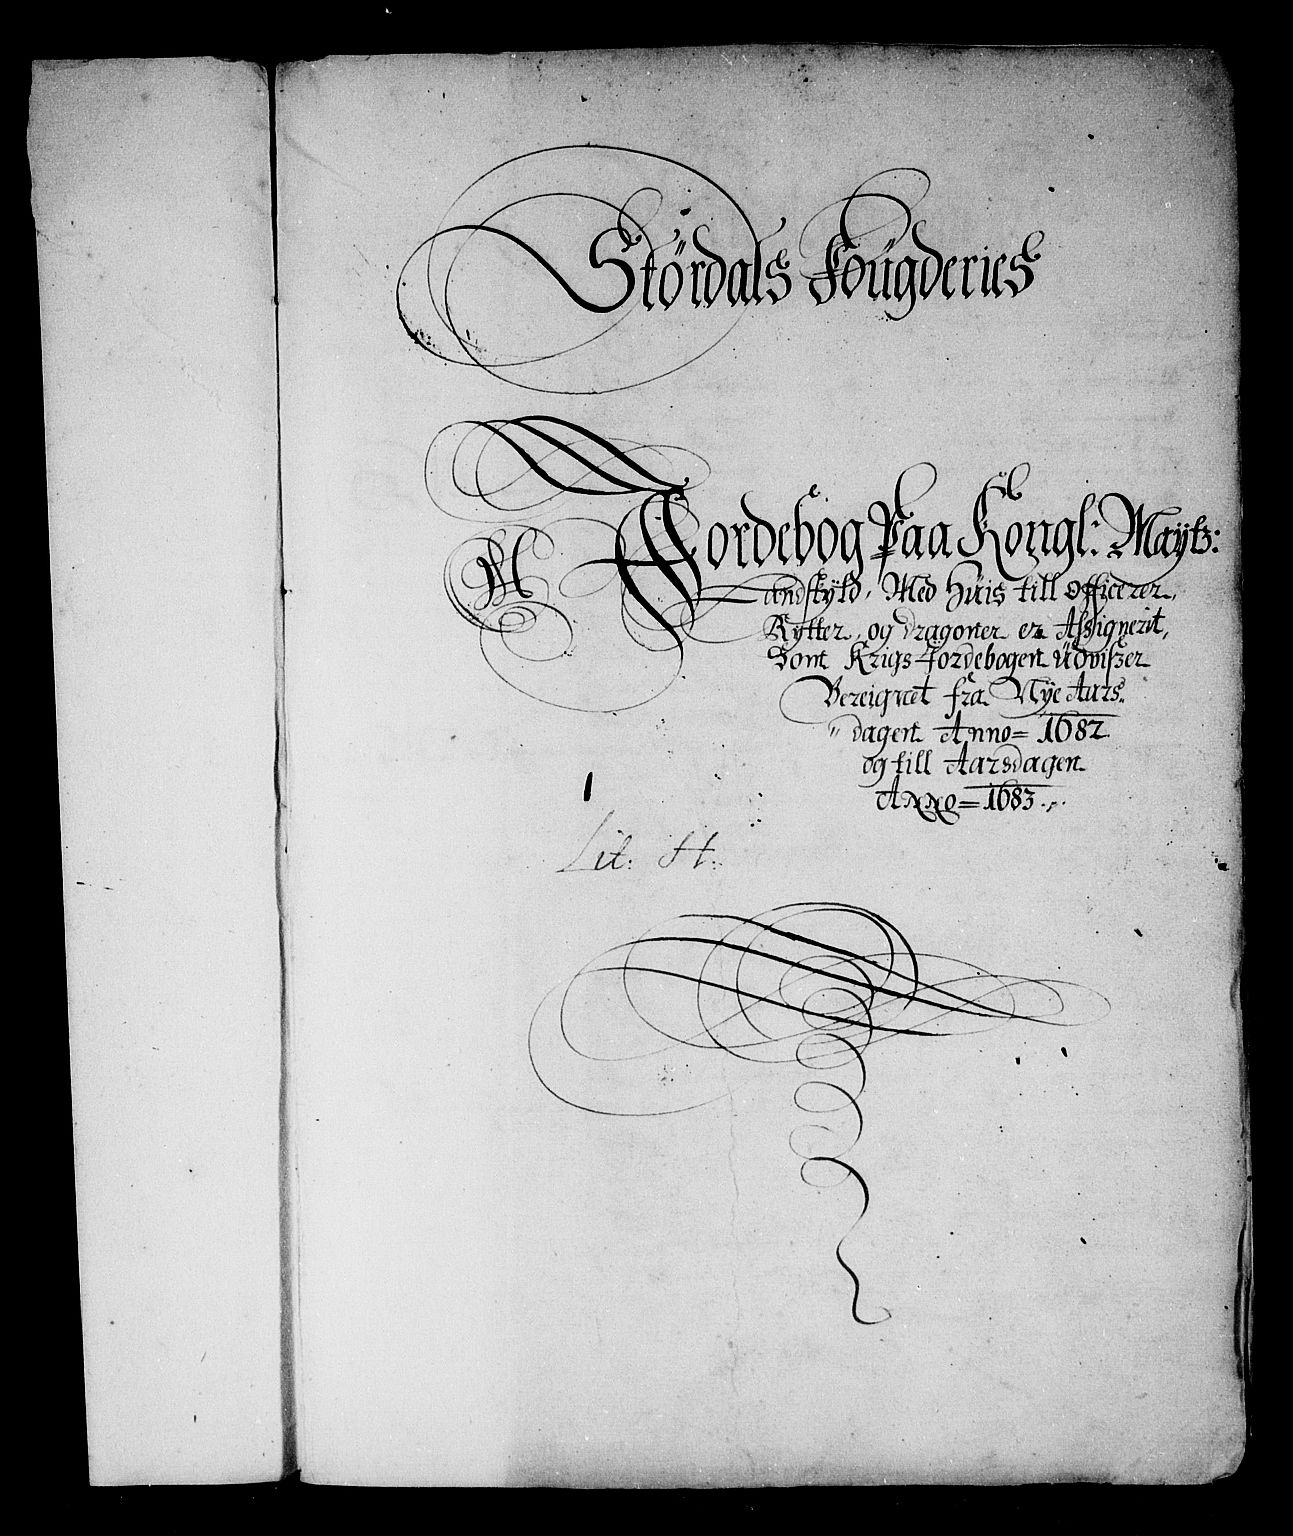 Stördals Foügderies
Jordebog Paa Kongl: Mayts:
Landskyld, Med Hüis till Officerer,
Rytter, og dragoner er Assignerit,
Som Krigs Jordebogen Udviszer
Bereignet fra Nye Aars„
„dagen Anno= 1682
og till Aarsdagen
Anno= 1683.
Lit: H: